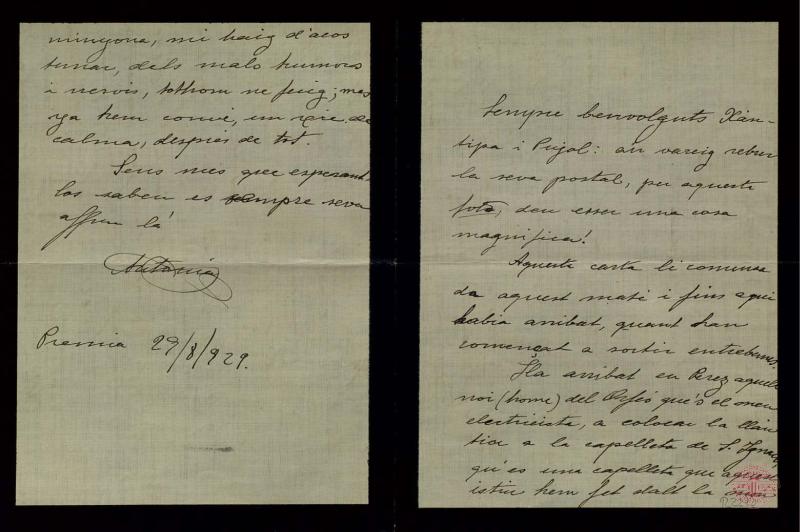 minyona, mi haig d'acos
tumar, dels mals humors
i nervis, tothom ne fuig; mes
ja hem convé, un xic de
calma, després de tot.
Sens mes que esperant
los saben es sempre seva
affm la
Antonia
Premia 29/8/929.
Sempre benvolguts Xan-
tipa i Pujol: an vareig rebrer
la seva postal, per aquesta
foto, deu esser una cosa
magnifica!
Aquesta carta li comensa
da aquest mati i fins aqui
habia arribat, quant han
començat a sortir entrebancs.
Ha arribat en Perez aquell
noi (home) del Orfeó qu'es el meu
electricista, a colocar la llan
tica a la capelleta de S. Ignaci,
qu'es una capelleta que aquest
istiu hem fet dalt la